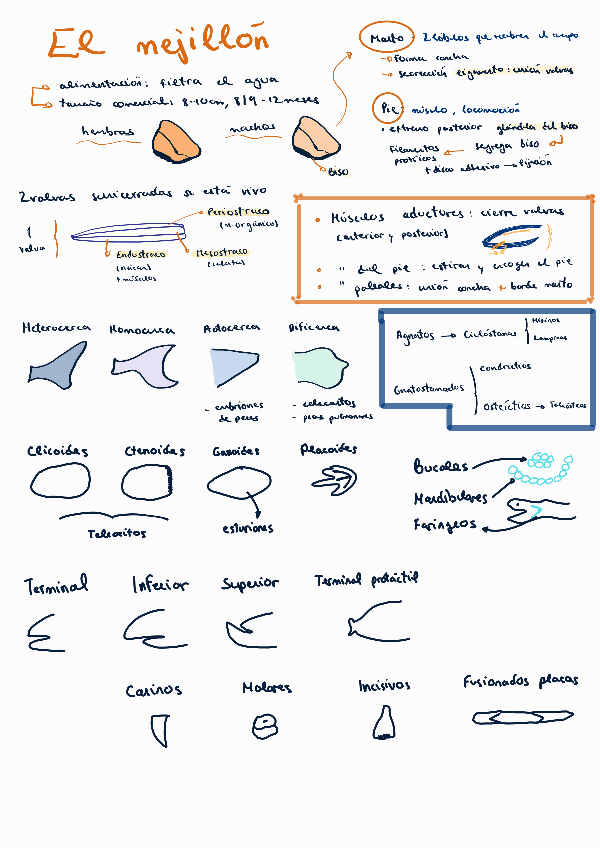 El mejillón
alimentación: filtra el agua
tamaño comercial: 8-10cm, 8/9-12 meses
hembras
machos
Biso
Manto: 2 lóbulos que recubren el cuerpo
forma concha
secreción ligamento: unión valvas
Pie músculo, locomoción
• extremo posterior glándula del biso
segrega biso
filamentos proteicos
+ disco adhesivo → fijación
2 valvas semicerradas si está vivo
1 valva
Periostraco
(m. orgánica)
Endostraco
(nácar)
+ músculos
Mesostraco
(calcita)
• Músculos aductores: cierre valvas
(anterior y posterior)
• " del pie: estirar y acoger el pie
• " paleales: unión concha + borde manto
Heterocerca
Homocerca
Adocerca
Dificerca
- embriones de peces
- celecantos
- peces pulmonares
Agnatos → Ciclóstomos
Mixinos
Lampreas
Gnatostomados
Condrictios
Osteíctios → Teleósteos
Clicoides
Ctenoides
Ganoides
Placoides
Teleositos
esturiones
Bucales
Mandibulares
Faríngeos
Terminal
Inferior
Superior
Terminal protáctil
Caninos
Molares
Incisivos
Fusionados placas